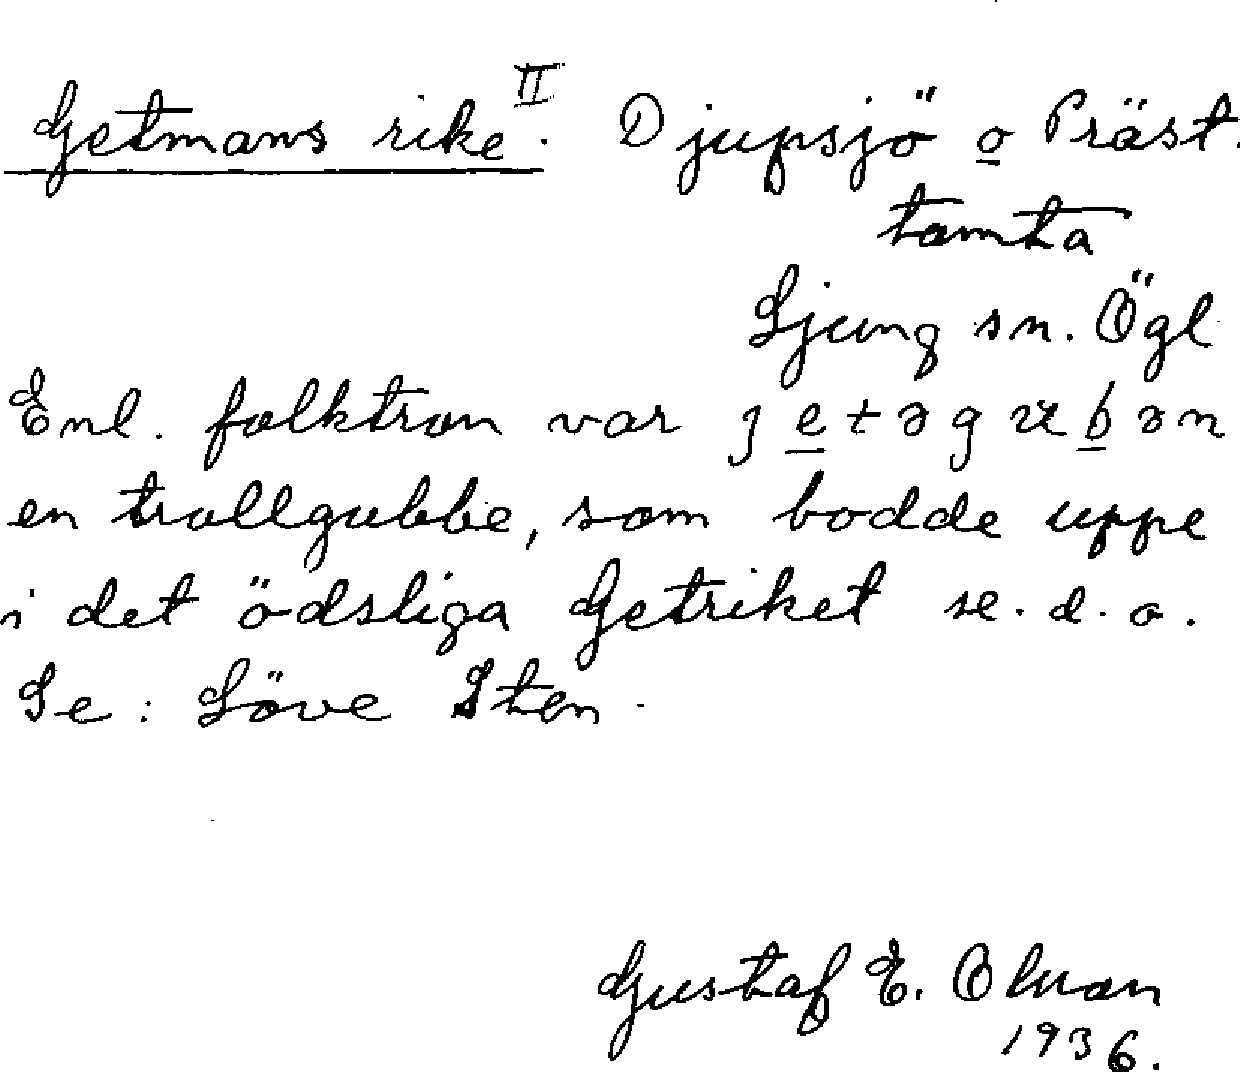 Getmans rike II. Djupsjö o Präst.
tomta
Ljung sn. Ögl
Enl. folktron var
en trollgubbe, som bodde uppe
i det ödsliga Getriket se. d. o.
Se: Löve Sten.
Gustaf E. Olsson
1936.